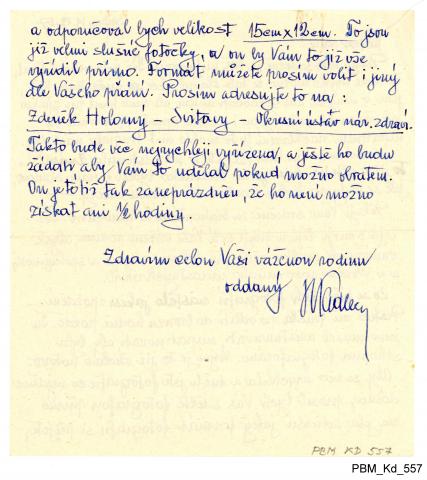 a odporučoval bych velikost 15cm x 12cm. To jsou
již velmi slušné fotočky, a on by Vám to již vše
vyřídil přímo. Formát můžete prosím volit i jiný
dle Vašeho přání. Prosím adresujte to na:
Zdeněk Holomý – Svitavy – Okresní ústav nár. zdraví.
Takto bude věc nejrychleji vyřízena, a ještě ho budu
žádati aby Vám to udělal pokud možno obratem.
On je totiž tak zaneprázdněn, že ho není možno
získat ani 1/2 hodiny.
Zdravím celou Vaši váženou rodinu
oddaný
PBM KD 557
PBM_Kd_557